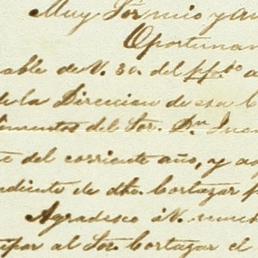 Muy Sr. mio y am
Oportunam
able de V. 30. del pp.do a
de la Direccion de esa C
limentos del Sor. Dn Juan
te del corriente año, y ag
ndiente de dho. Cortazar p
Agradesco á V. much
cupar al Sor. Cortazar el